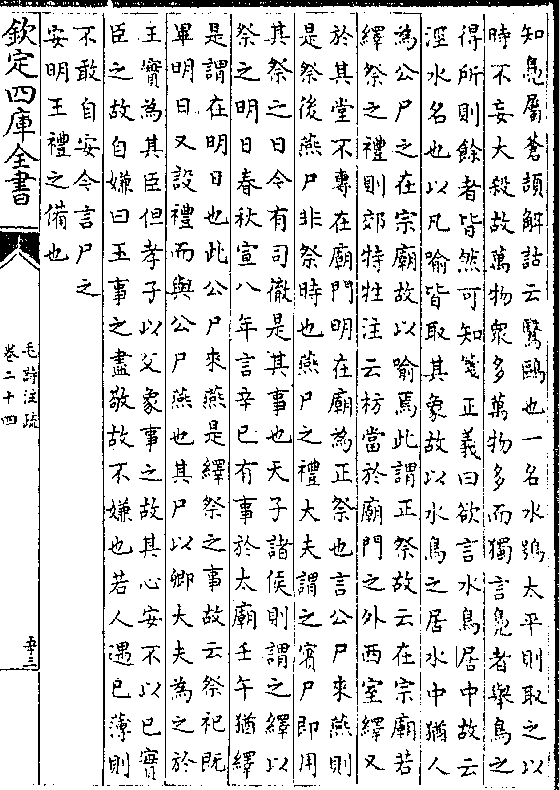 知鳧屬蒼頡解詁云鷖鷗也一名水鴞太平則取之以
時不妄大殺故萬物衆多萬物多而獨言鳧者舉鳥之
得所則餘者皆然可知箋正義曰欲言水鳥居中故云
涇水名也以凡喻皆取其象故以水鳥之居水中猶人
為公尸之在宗廟故以喻焉此謂正祭故云在宗廟若
繹祭之禮則郊特牲注云枋當於廟門之外西室繹又
於其堂不專在廟門明在廟為正祭也言公尸來燕則
是祭後燕尸非祭時也燕尸之禮大夫謂之賓尸即用
其祭之日今有司徹是其事也天子諸侯則謂之繹以
祭之明日春秋宣八年言辛巳有事於太廟壬午猶繹
是謂在明日也此公尸來燕是繹祭之事故云祭祀既
畢明日又設禮而與公尸燕也其尸以卿大夫為之於
王實為其臣但孝子以父象事之故其心安不以已實
臣之故自嫌曰王事之盡敬故不嫌也若人遇已薄則
不敢自安今言尸之
安明王禮之備也
欽定四庫全書
毛詩注疏
卷二十四
五三